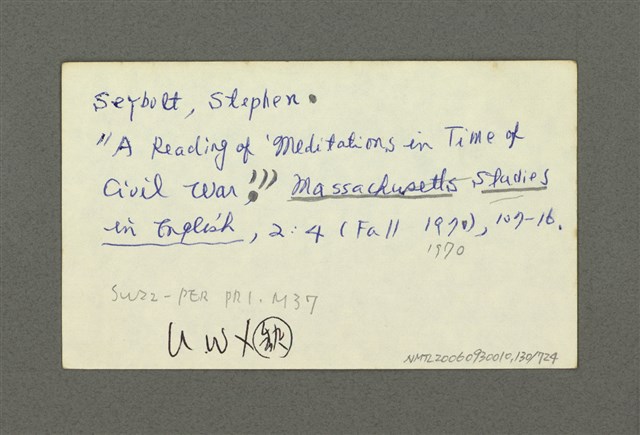 Seybolt, Stephen.
"A Reading of 'Meditations in Time of
Civil War,'" Massachusetts Studies
in English, 2:4 (Fall 1970), 107-16.
1970
SUZZ-PER PR1.M37
U W X 缺
NMTL20060930010,130/724